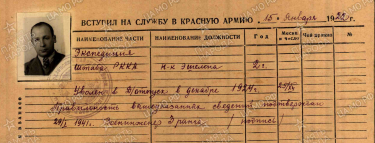 ВСТУПИЛ НА СЛУЖБУ В КРАСНУЮ АРМИЮ 15 Января 1922 г.
НАИМЕНОВАНИЕ ЧАСТИ НАИМЕНОВАНИЕ ДОЛЖНОСТИ Год Месяц и число Чей приказ №
Экспедиция
Штаба РККА н-к эшелона
Уволен в отпуск в декабре 1924г.
Правильность вышеуказанных сведений подтверждаю
1941. Военинженер /подпись/